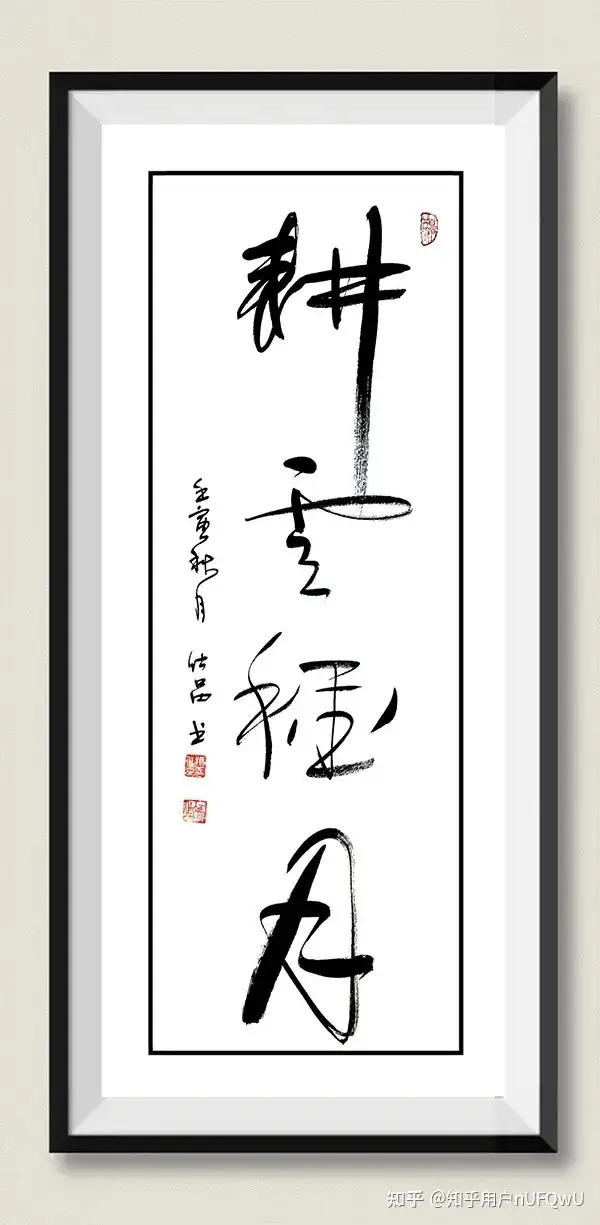 耕雲種月
壬寅秋月 仕品书
知乎 @知乎用户nUFQwU